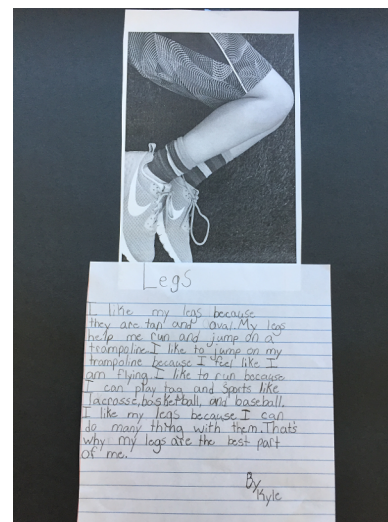 Legs
I like my legs because
they are tan and oval. My legs
help me run and jump on a
trampoline. I like to jump on my
trampoline because I feel like I
am flying. I like to run because
I can play tag and sports like
lacrosse, basketball, and baseball.
I like my legs because I can
do many thing with them. That's
why my legs are the best part
of me.
By
Kyle